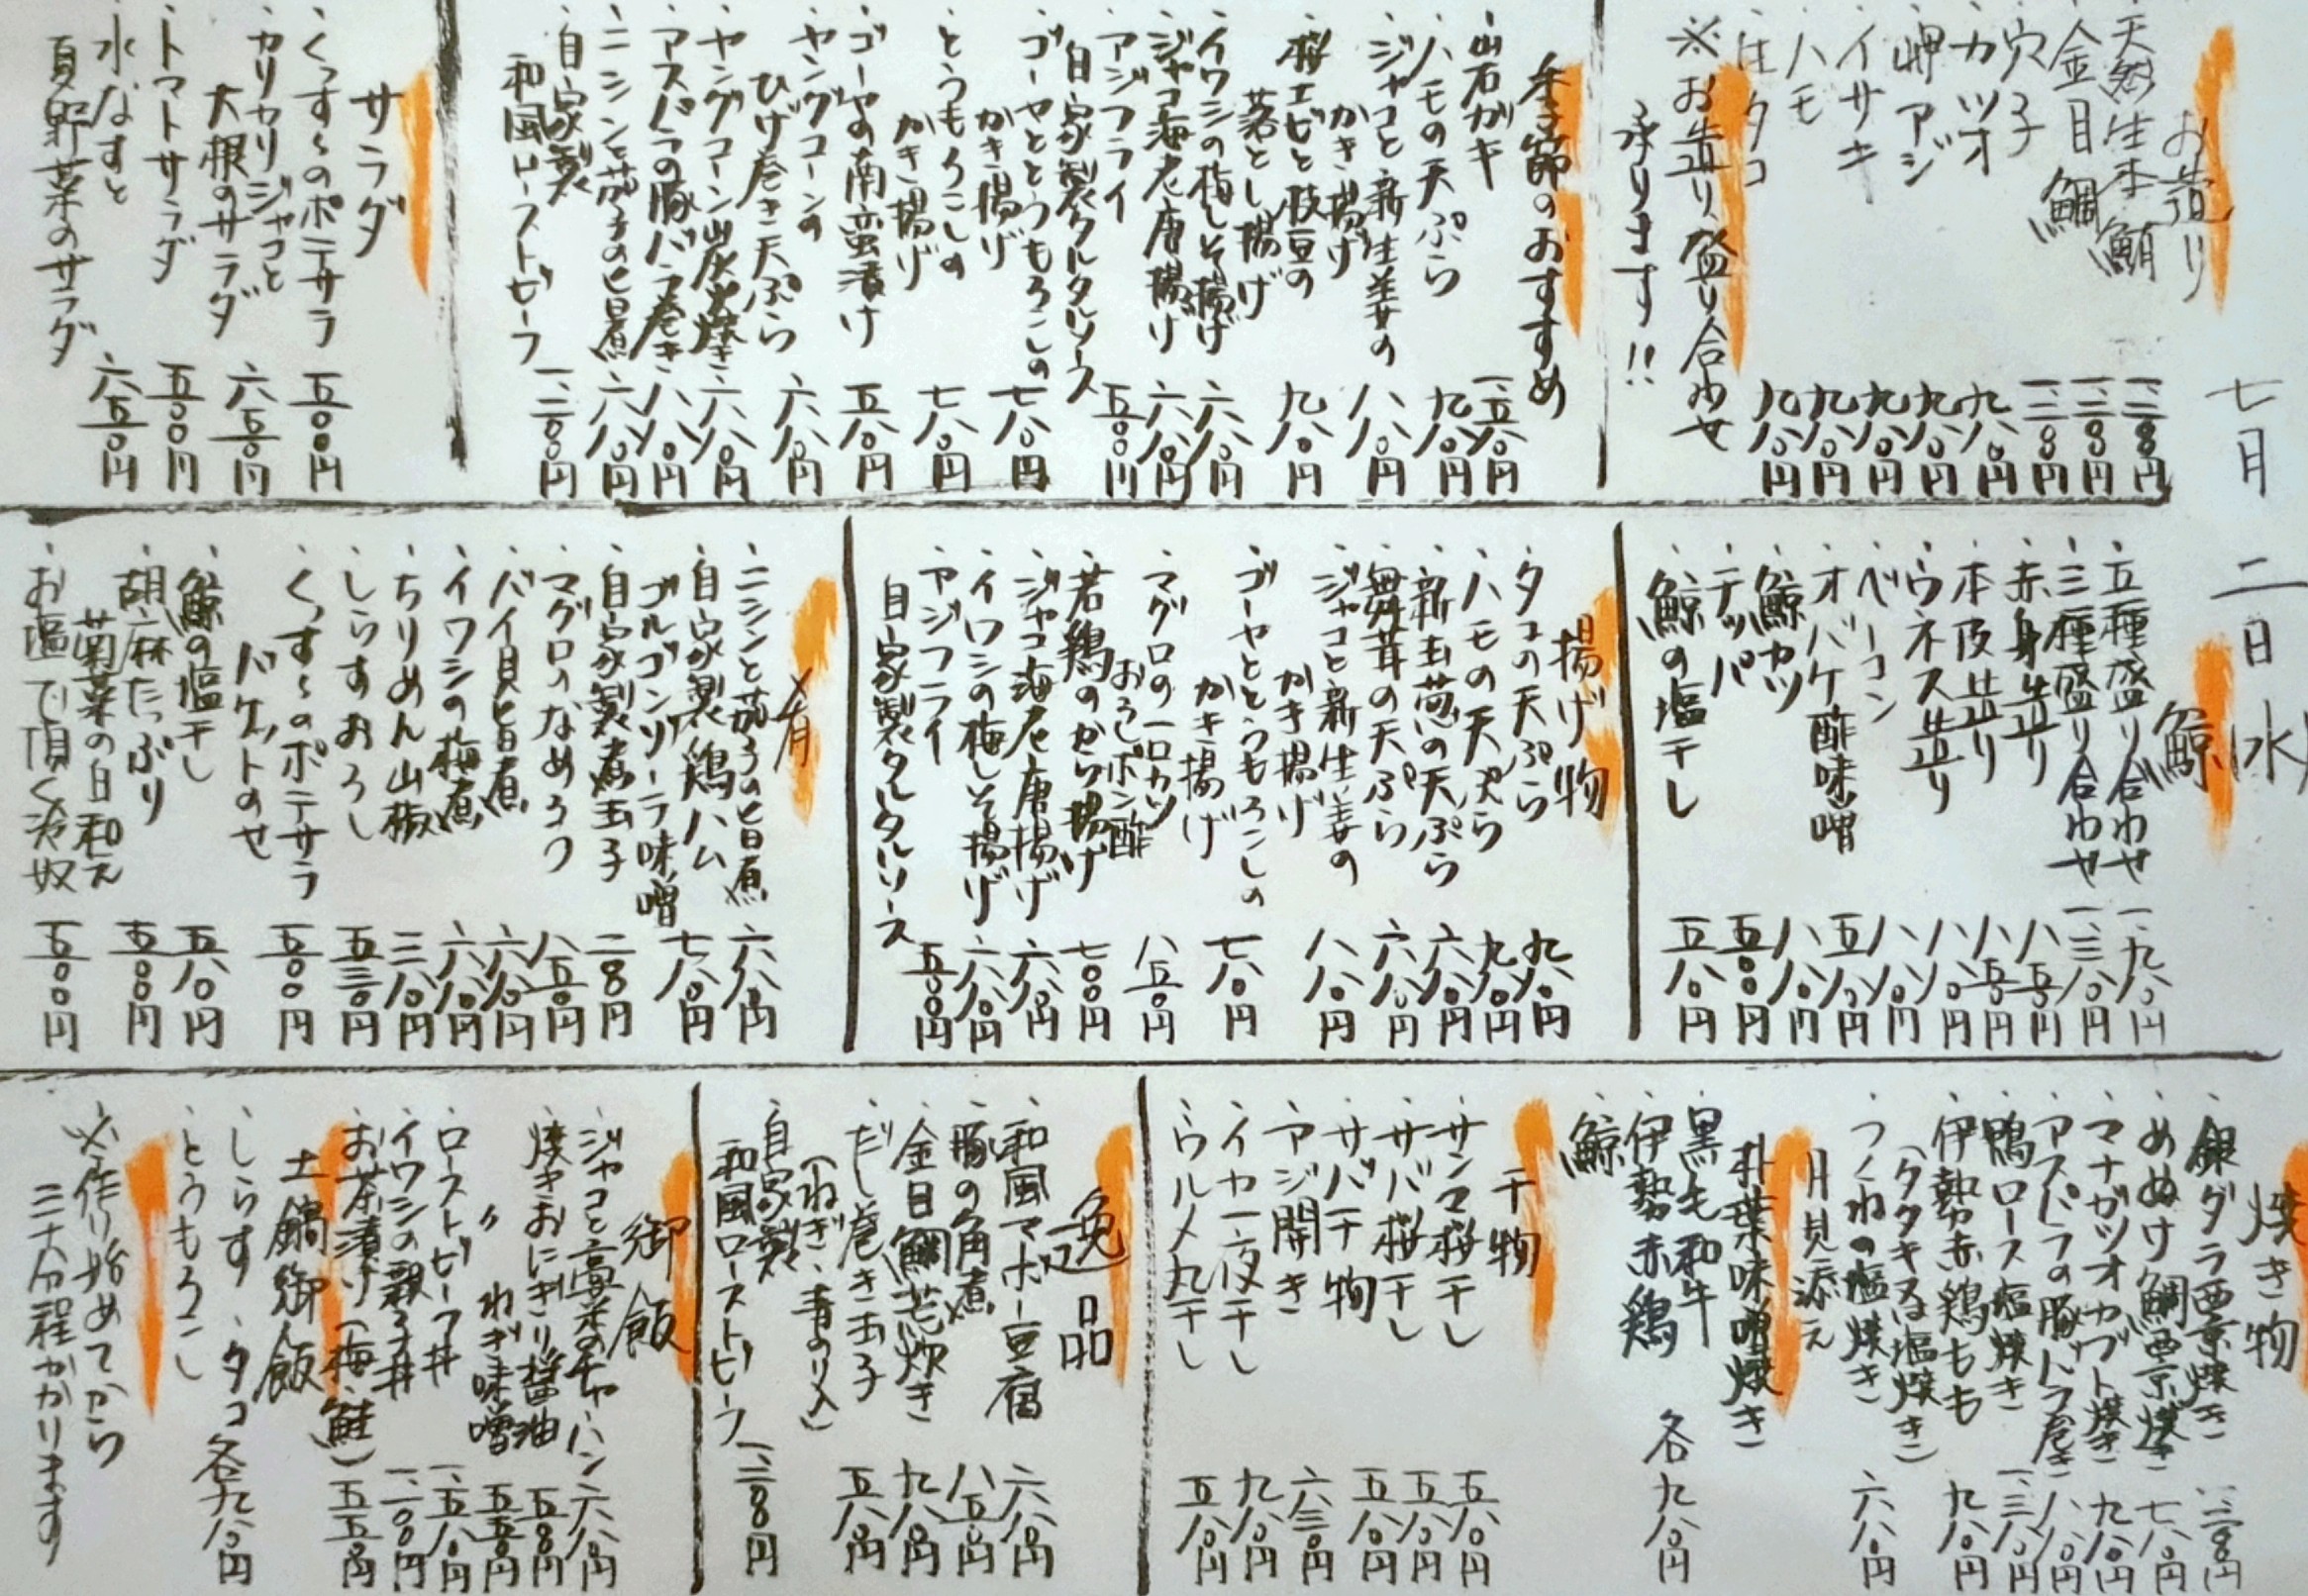 七月二日(水)
お造り
・天然生本鮪 一、二八〇円
・金目鯛 一、二八〇円
・穴子 一、二八〇円
・カツオ 九八〇円
・岬アジ 九八〇円
・イサキ 九八〇円
・ハモ 九八〇円
・活タコ 九八〇円
※お造り盛り合わせ
承ります!!
季節のおすすめ
・岩ガキ 一、五八〇円
・ハモの天ぷら 九八〇円
・ジャコと新生姜の
かき揚げ 八八〇円
・桜エビと枝豆の
落とし揚げ 九八〇円
・イワシの梅しそ揚げ 六八〇円
・ジャコ海老唐揚げ 六八〇円
・アジフライ 五〇〇円
自家製タルタルソース
・ゴーヤととうもろこしの
かき揚げ 七八〇円
・とうもろこしの
かき揚げ 七八〇円
・ゴーヤの南蛮漬け 五八〇円
・ヤングコーンの
ひげ巻き天ぷら 六八〇円
・ヤングコーン炭火焼き 六八〇円
・アスパラの豚バラ巻き 八八〇円
・ニシンと茄子の旨煮 六八〇円
・自家製
和風ローストビーフ 一、二八〇円
サラダ
・くっすぅのポテサラ 五〇〇円
・カリカリジャコと
大根のサラダ 六五〇円
・トマトサラダ 五〇〇円
・水なすと
夏野菜のサラダ 六五〇円
鯨
・五種盛り合わせ 一、九八〇円
・三種盛り合わせ 一、三八〇円
・赤身造り 八五〇円
・本皮造り 八五〇円
・ウネス造り 八八〇円
・ベーコン 八八〇円
・オバケ酢味噌 五八〇円
・鯨カツ 八八〇円
・テッパ 五五〇円
・鯨の塩干し 五八〇円
揚げ物
・タコの天ぷら 九八〇円
・ハモの天ぷら 九八〇円
・新玉葱の天ぷら 六八〇円
・舞茸の天ぷら 六八〇円
・ジャコと新生姜の
かき揚げ 八八〇円
・ゴーヤととうもろこしの
かき揚げ 七八〇円
・マグロの一口カツ
おろしポン酢 八五〇円
・若鶏のから揚げ 七〇〇円
・ジャコ海老唐揚げ 六八〇円
・イワシの梅しそ揚げ 六八〇円
・アジフライ 五〇〇円
自家製タルタルソース
肴
・ニシンと茄子の旨煮 六八〇円
・自家製鶏ハム
ゴルゴンゾーラ味噌 七八〇円
・自家製煮玉子 二八〇円
・マグロのなめろう 八五〇円
・バイ貝旨煮 六八〇円
・イワシの梅煮 六八〇円
・ちりめん山椒 三八〇円
・しらすおろし 五三〇円
・くっすぅのポテサラ
バゲットのせ 五〇〇円
・鯨の塩干し 五八〇円
・胡麻たっぷり
菊菜の白和え 五〇〇円
・お塩で頂く冷奴 五〇〇円
焼き物
・銀ダラ西京焼き 一、二八〇円
・めぬけ鯛西京焼き 七八〇円
・マナガツオカブト焼き 九八〇円
・アスパラの豚バラ巻き 八八〇円
・鴨ロース塩焼き 一、三八〇円
・伊勢赤鶏もも 九八〇円
(タタキ又は塩焼き)
・つくねの塩焼き 六八〇円
月見添え
朴葉味噌焼き
・黒毛和牛
・伊勢赤鶏 各九八〇円
・鯨
干物
・サンマ桜干し 五八〇円
・サバ桜干し 五八〇円
・サバ干物 五八〇円
・アジ開き 六三〇円
・イカ一夜干し 九八〇円
・ウルメ丸干し 五八〇円
逸品
・和風マボー豆腐 六八〇円
・豚の角煮 八五〇円
・金目鯛荒炊き 九八〇円
・だし巻き玉子 五八〇円
(ねぎ、青のり入)
・自家製
和風ローストビーフ 一、二八〇円
御飯
・ジャコと高菜のチャーハン 六八〇円
・焼きおにぎり醤油 五〇〇円
・〃 ねぎ味噌 五五〇円
・ローストビーフ丼 一、五八〇円
・イワシの親子丼 一、二〇〇円
・お茶漬け(梅・鮭) 五五〇円
土鍋御飯
・しらす ・タコ 各九八〇円
・とうもろこし
※作り始めてから
三十分程かかります